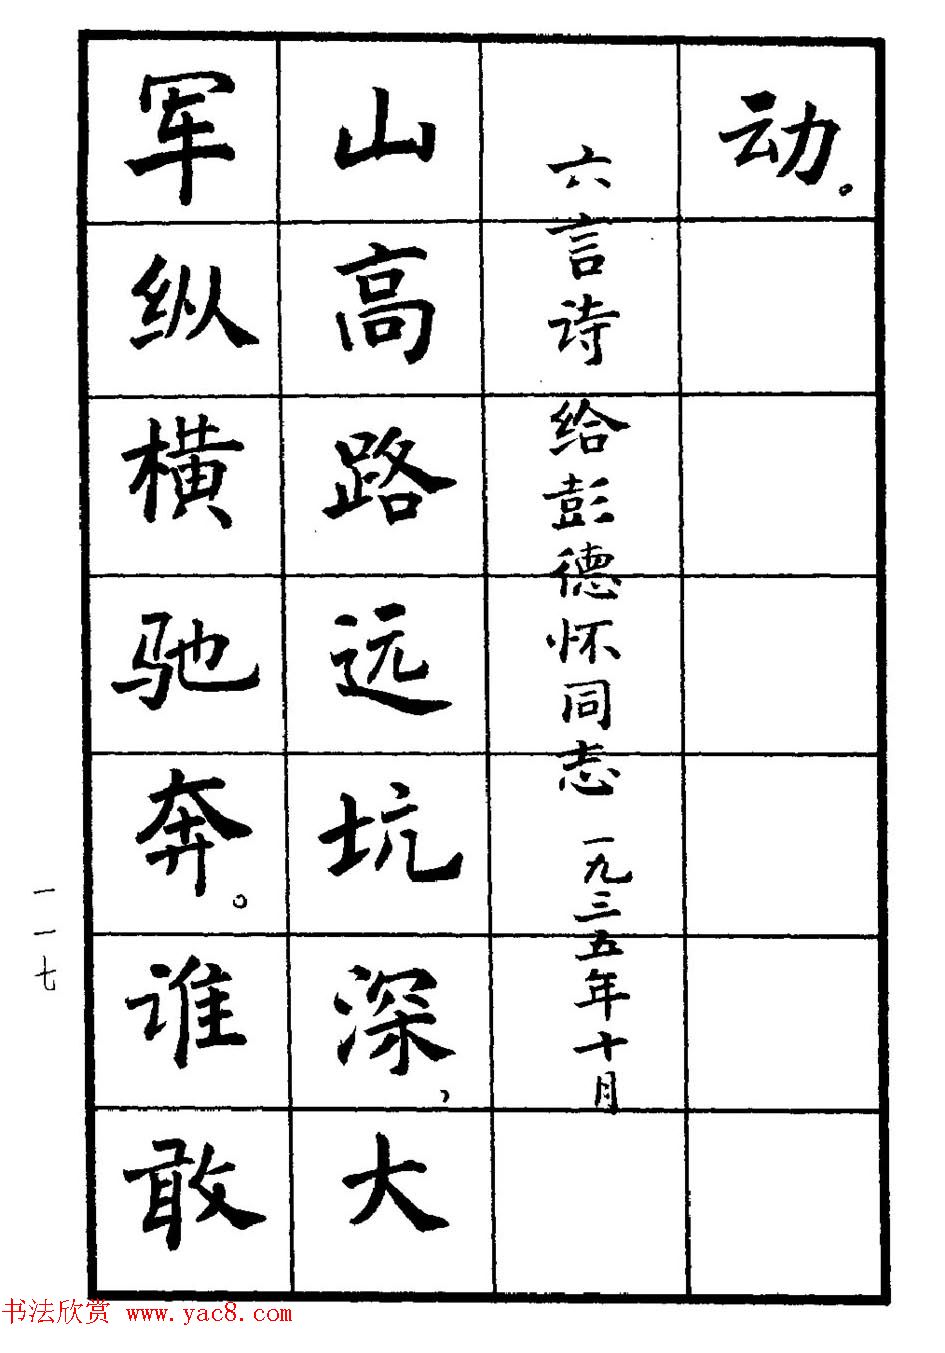 动。
六言诗 给彭德怀同志 一九三五年十月
山高路远坑深，大
军纵横驰奔。谁敢
一一七
书法欣赏 www.yac8.com